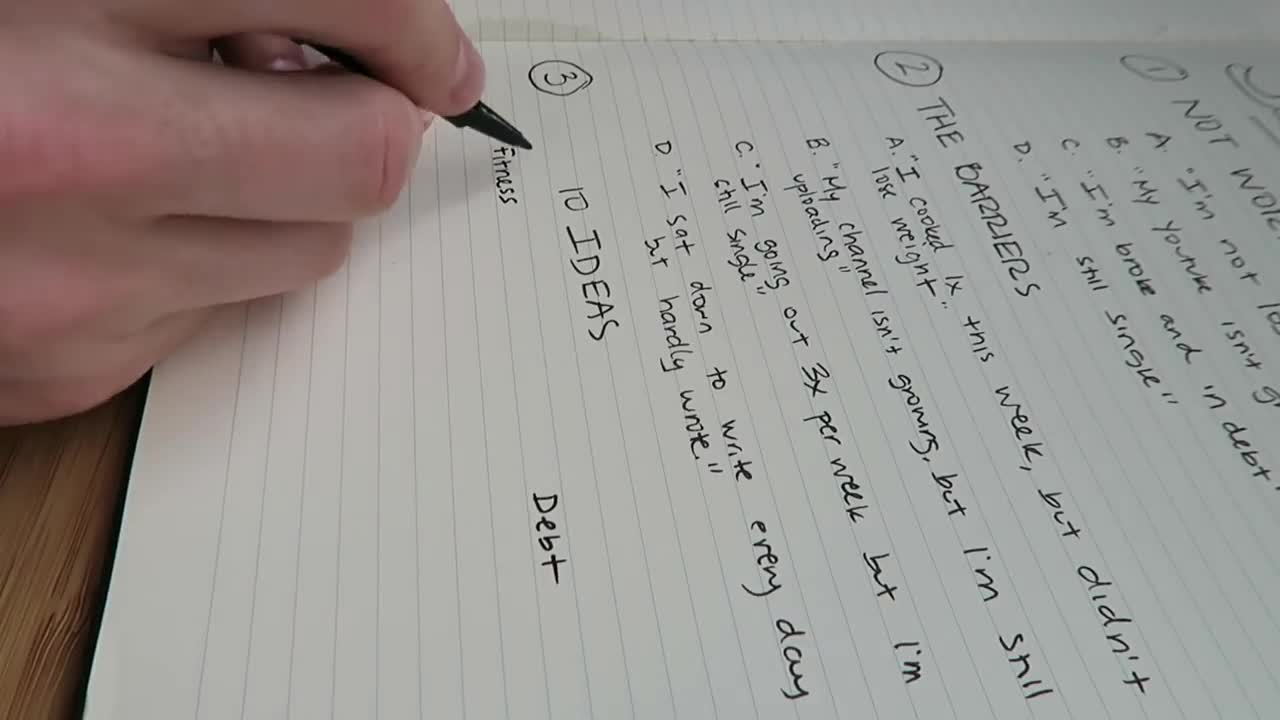 ① NOT
A. "I'm not
B. "My Youtube isn't
C. "I'm broke and in debt"
D. "I'm still single"
② THE BARRIERS
A. "I cooked 1x this week, but didn't
lose weight"
B. "My channel isn't growing, but I'm still
uploading"
C. "I'm going out 3x per week but I'm
still single"
D. "I sat down to write every day
but hardly wrote."
③ 10 IDEAS
Debt
fitness